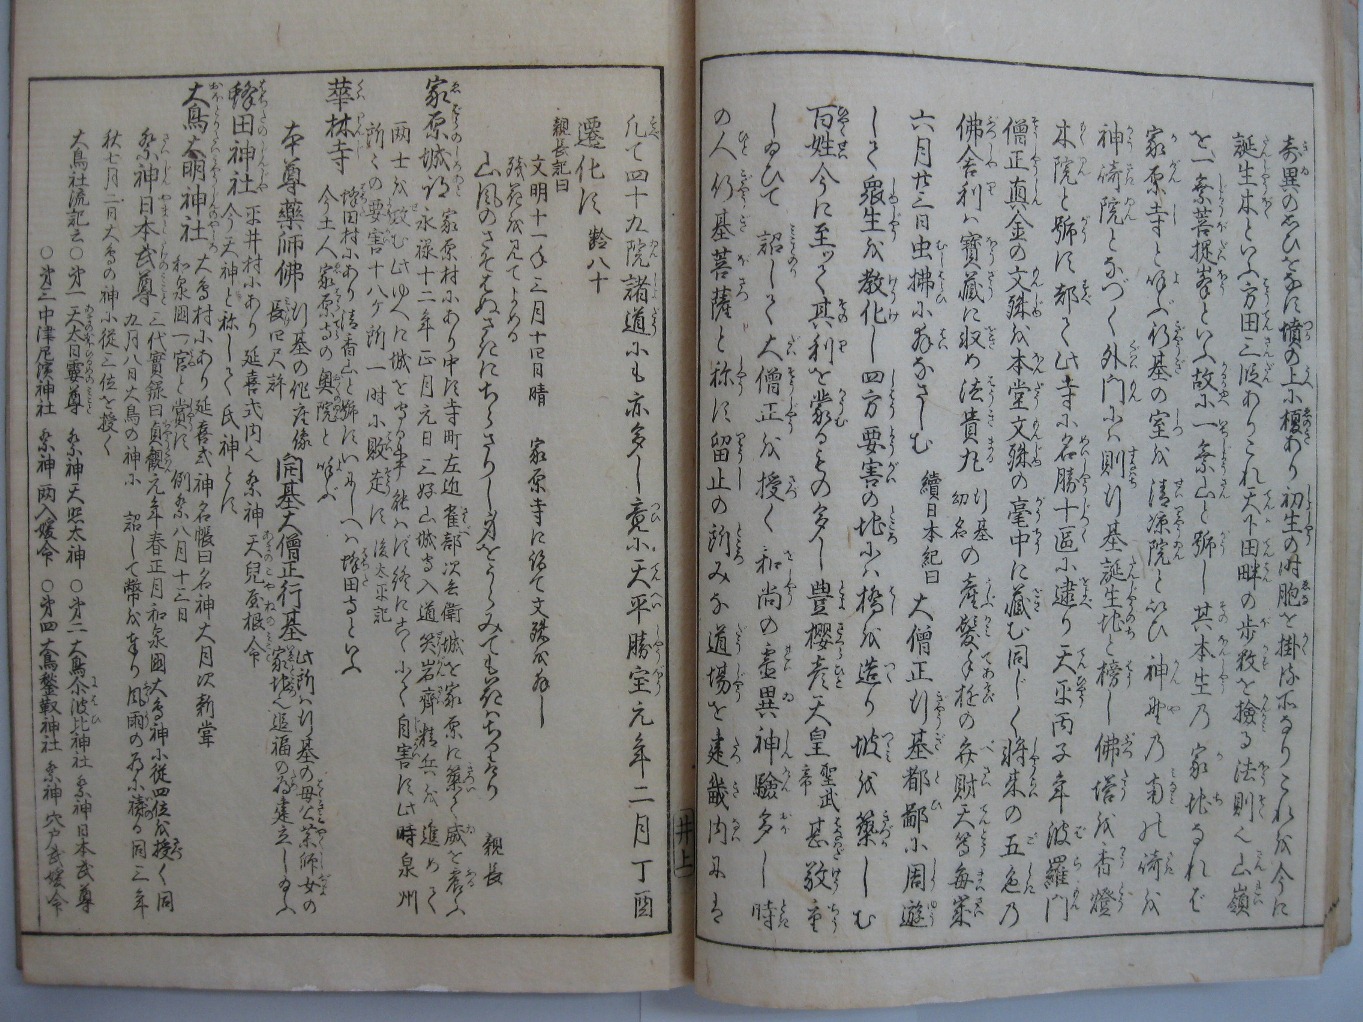 奇異のおもひをなす墳の上に榎あり初生の時胞を掛し所なりこれを今に
誕生木といふ方田三段ありこれ天下田畔の歩数を撿る法則也山嶺
を一乗菩提峯といふ故に一乗山と号し其本生乃家地なれば
家原寺とよぶ行基の室を清涼院といひ神野乃南の倚を
神倚院となづく外門には則行基誕生地と榜し佛塔を香燈
木院と号す都て此寺に名勝十區に逮り天平丙子年波羅門
僧正真金の文殊を本堂文殊の毫中に蔵む同じく将来の五色乃
佛舎利は寶蔵に収め法貴丸行基幼名の産髪手遊の弁財天等毎歳
六月廿三日虫拂に拝なさしむ 續日本紀曰 大僧正行基都鄙に周遊
して衆生を教化し四方要害の地には橋を造り坡を築しむ
百姓今に至て其利を蒙るもの多し豊櫻彦天皇聖武帝甚敬重
しゐひて 詔して大僧正を授く和尚の霊異神驗多し時
の人行基菩薩と称す留止の所みな道場を建畿内には
凡て四十九院諸道にも亦多し竟に天平勝宝元年二月丁酉
遷化す 齢八十
親長記曰
文明十一年三月十四日晴 家原寺に詣て文殊を拝し
残花を見てよめる
山風のさそはぬさきにちらさりし身をうらみても花はちるなり 親長
家原城跡 家原村にあり中す寺町左近雀部次兵衛城を家原に築て威を震ふ
永禄十二年正月元日三好山城守入道笑岩齋精兵を進めて
両士を攻む此ゆへに城を守る事能はず終にことごとく自害す此時泉州
所々の要害十八ヶ所一時に敗走す 後太平記
華林寺 蜂田村にあり清香山と号すいにしへは蜂田寺といふ
今土人家原寺の奥院と呼ぶ
本尊薬師佛 行基の作座像長四尺許 開基大僧正行基 此所は行基の母公薬師女の
家地也追福の為建立しゐふ
蜂田神社 平井村にあり延喜式内也祭神天兒屋根命
今天神と称して氏神とす
大鳥大明神社 大鳥村にあり延喜式神名帳曰名神大月次新嘗
和泉國一宮と賞す 例祭八月十三日
祭神日本武尊 三代實録曰貞観元年春正月和泉國大鳥神に従四位を授く同
九月八日大鳥の神に 詔して幣を奉り風雨の為に祷る同三年
秋七月二日大鳥の神に従三位を授く
大鳥社流記云○第一天太日孁尊 祭神天照太神 ○第二大鳥尒波比神社 祭神日本武尊
○第三中津尾濱神社 祭神両入媛命 ○第四大鳥鍬靱神社 祭神穴戸武媛命
井上